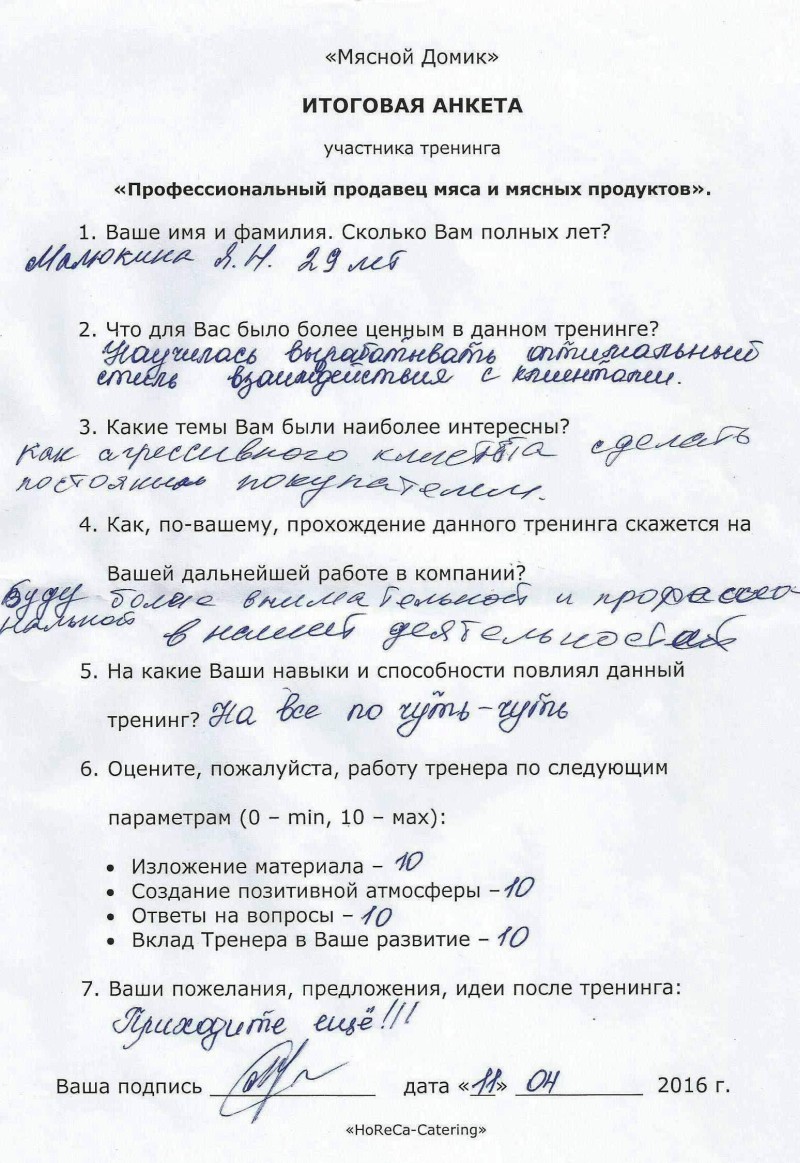 «Мясной Домик»
ИТОГОВАЯ АНКЕТА
участника тренинга
«Профессиональный продавец мяса и мясных продуктов».
1. Ваше имя и фамилия. Сколько Вам полных лет?
Малюкина Я.Н. 29 лет
2. Что для Вас было более ценным в данном тренинге?
Научилась вырабатывать оптимальный
стиль взаимодействия с клиентами.
3. Какие темы Вам были наиболее интересны?
как агрессивного клиента сделать
постоянным покупателем.
4. Как, по-вашему, прохождение данного тренинга скажется на
Вашей дальнейшей работе в компании?
Буду более внимательной и профессио-
нальной в нашей деятельности
5. На какие Ваши навыки и способности повлиял данный
тренинг? На все по чуть-чуть
6. Оцените, пожалуйста, работу тренера по следующим
параметрам (0 – min, 10 – мах):
• Изложение материала – 10
• Создание позитивной атмосферы – 10
• Ответы на вопросы – 10
• Вклад Тренера в Ваше развитие – 10
7. Ваши пожелания, предложения, идеи после тренинга:
Приходите ещё!!!
Ваша подпись дата «11» 04 2016 г.
«HoReCa-Catering»